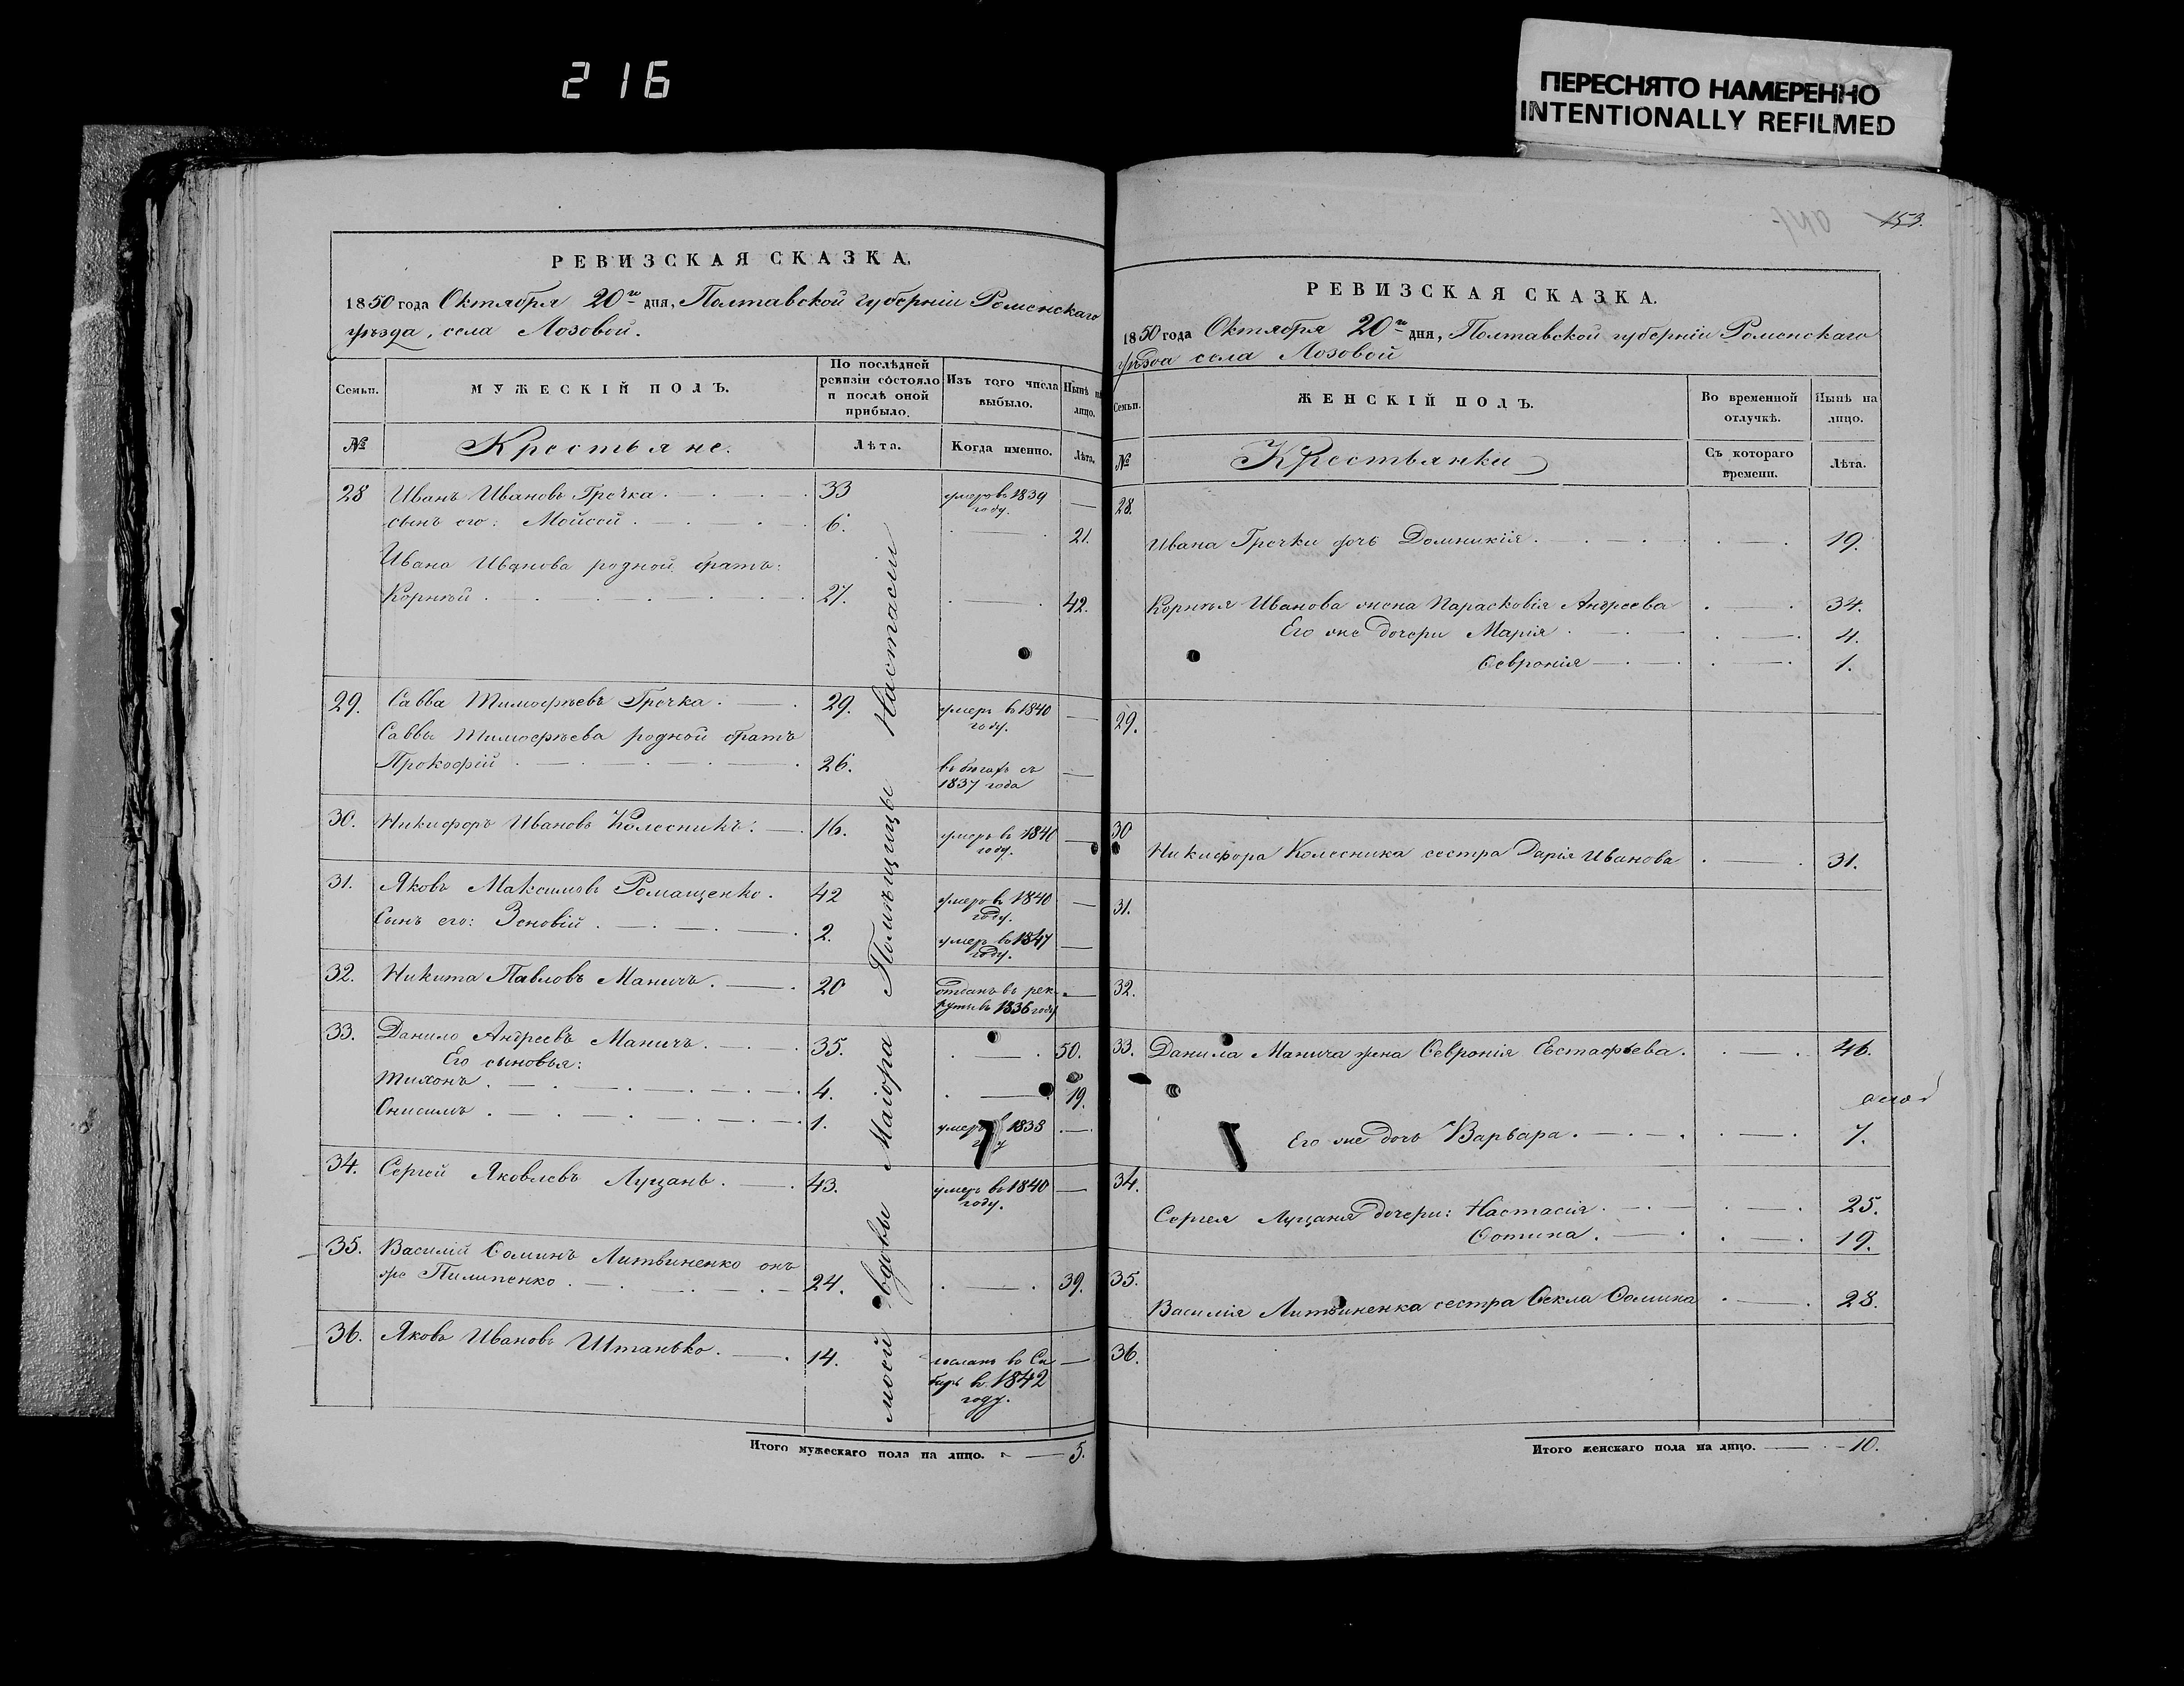 216
ПЕРЕСНЯТО НАМЕРЕННО
INTENTIONALLY REFILMED
РЕВИЗСКАЯ СКАЗКА.
1850 года Октября 20го дня, Полтавской губерніи Роменскаго
уѣзда, села Лозовой.
Семьи.
МУЖЕСКІЙ ПОЛЪ.
По послѣдней ревизіи состояло и послѣ оной прибыло.
Изъ того числа выбыло.
Нынѣ на лицо.
№
Крестьяне.
Лѣта.
Когда именно.
Лѣта.
28 Иванъ Ивановъ Гречка. 33 умеръ въ 1839 году.
сынъ его: Мойсей. 6. 21.
Ивана Иванова родной братъ:
Корнѣй 27. 42.
29. Савва Тимофѣевъ Гречка. 29. умеръ въ 1840 году.
Саввы Тимофѣева родной братъ
Прокофій 26. въ бѣгахъ съ 1837 года
30. Никифоръ Ивановъ Колесникъ. 16. умеръ въ 1840 году.
31. Яковъ Максимовъ Ромащенко. 42 умеръ въ 1840 году.
Сынъ его: Зеновій 2. умеръ въ 1847 году.
32. Никита Павловъ Маничъ. 20 отданъ въ рекруты въ 1836 году
33. Данило Андреевъ Маничъ. 35. 50.
Его сыновья:
Тихонъ. 4. 19.
Онисимъ 1. умеръ 1838
34. Сергей Яковлевъ Луцань. 43. умеръ въ 1840 году.
35. Василій Ѳоминъ Литвиненко онъ
же Пилипенко. 24. 39.
36. Яковъ Ивановъ Штанько. 14. сосланъ въ Сибирь въ 1842 году.
моей вдовы Маіора Помѣщицы Настасіи
Итого мужескаго пола на лицо. 5.
153.
РЕВИЗСКАЯ СКАЗКА.
1850 года Октября 20го дня, Полтавской губерніи Роменскаго
уѣзда села Лозовой
Семьи.
ЖЕНСКІЙ ПОЛЪ.
Во временной отлучкѣ.
Нынѣ на лицо.
№
Крестьянки
Съ котораго времени.
Лѣта.
28.
Ивана Гречки дочь Домникія. 19.
Корнѣя Иванова жена Парасковія Андреева 34.
Его же дочери Марія 4.
Ѳевронія 1.
29.
30
Никифора Колесника сестра Дарія Иванова 31.
31.
32.
33. Данила Манича жена Ѳевронія Евстафьева. 46.
Его же дочь Варвара. 7.
34.
Сергея Луцаня дочери: Настасія. 25.
Ѳотина. 19.
35.
Василія Литвиненка сестра Ѳекла Ѳомина 28.
36.
Итого женскаго пола на лицо. 10.